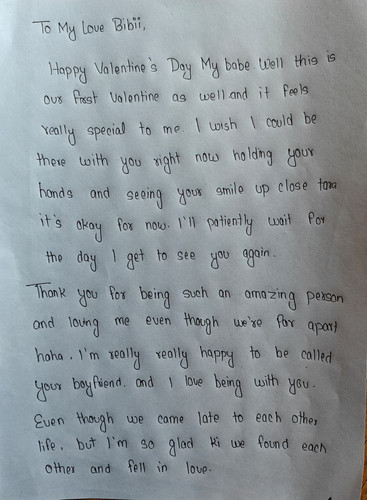 To My Love Bibii,
Happy Valentine's Day My babe. Well this is
our first Valentine as well and it feels
really special to me. I wish I could be
there with you right now holding your
hands and seeing your smile up close tara
it's okay for now. I'll patiently wait for
the day I get to see you again.
Thank you for being such an amazing person
and loving me even though we're far apart
haha. I'm really really happy to be called
your boyfriend. and I love being with you.
Even though we came late to each other
life. but I'm so glad ki we found each
other and fell in love.